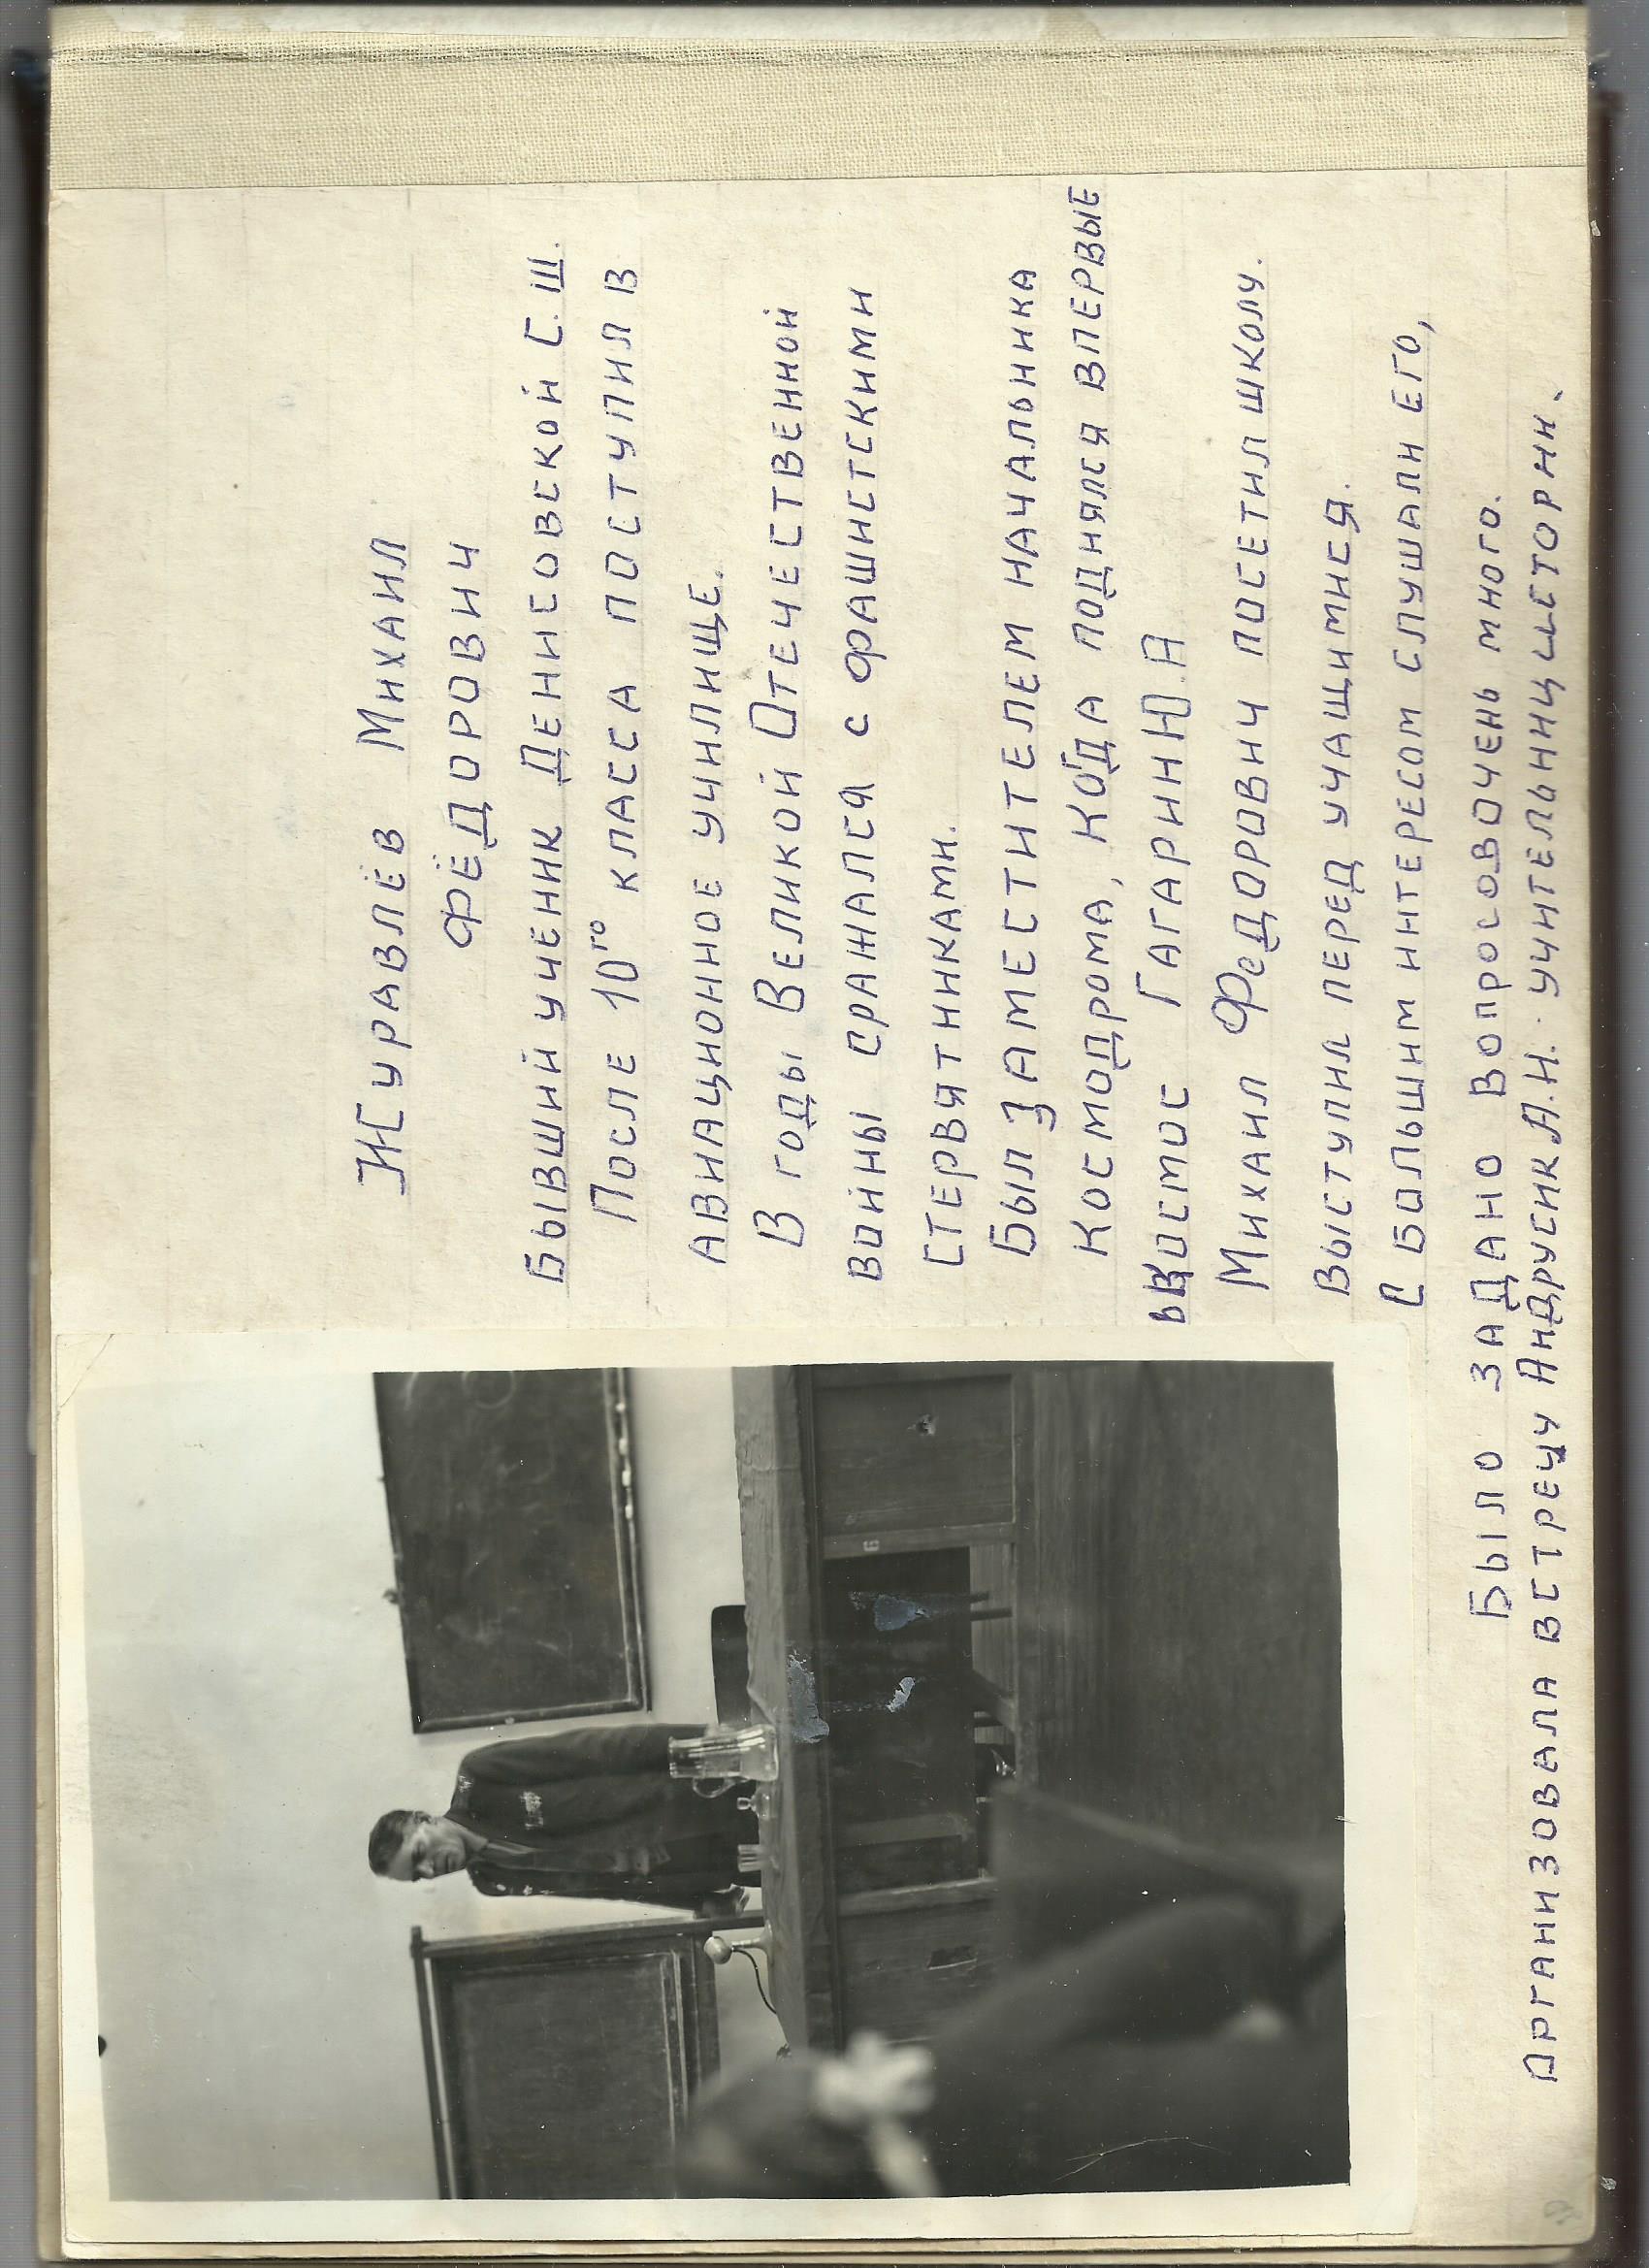 Журавлёв Михаил
Фёдорович
Бывший ученик Денисовской С.Ш.
После 10го класса поступил в
авиационное училище.
В годы Великой Отечественной
войны сражался с фашистскими
стервятниками.
Был заместителем начальника
Космодрома, когда поднялся впервые
в Космос Гагарин Ю.А
Михаил Федорович посетил школу.
Выступил перед учащимися.
С большим интересом слушали его,
Было задано вопросов очень много.
Организовала встречу Андрусик А.Н. учительница истории.